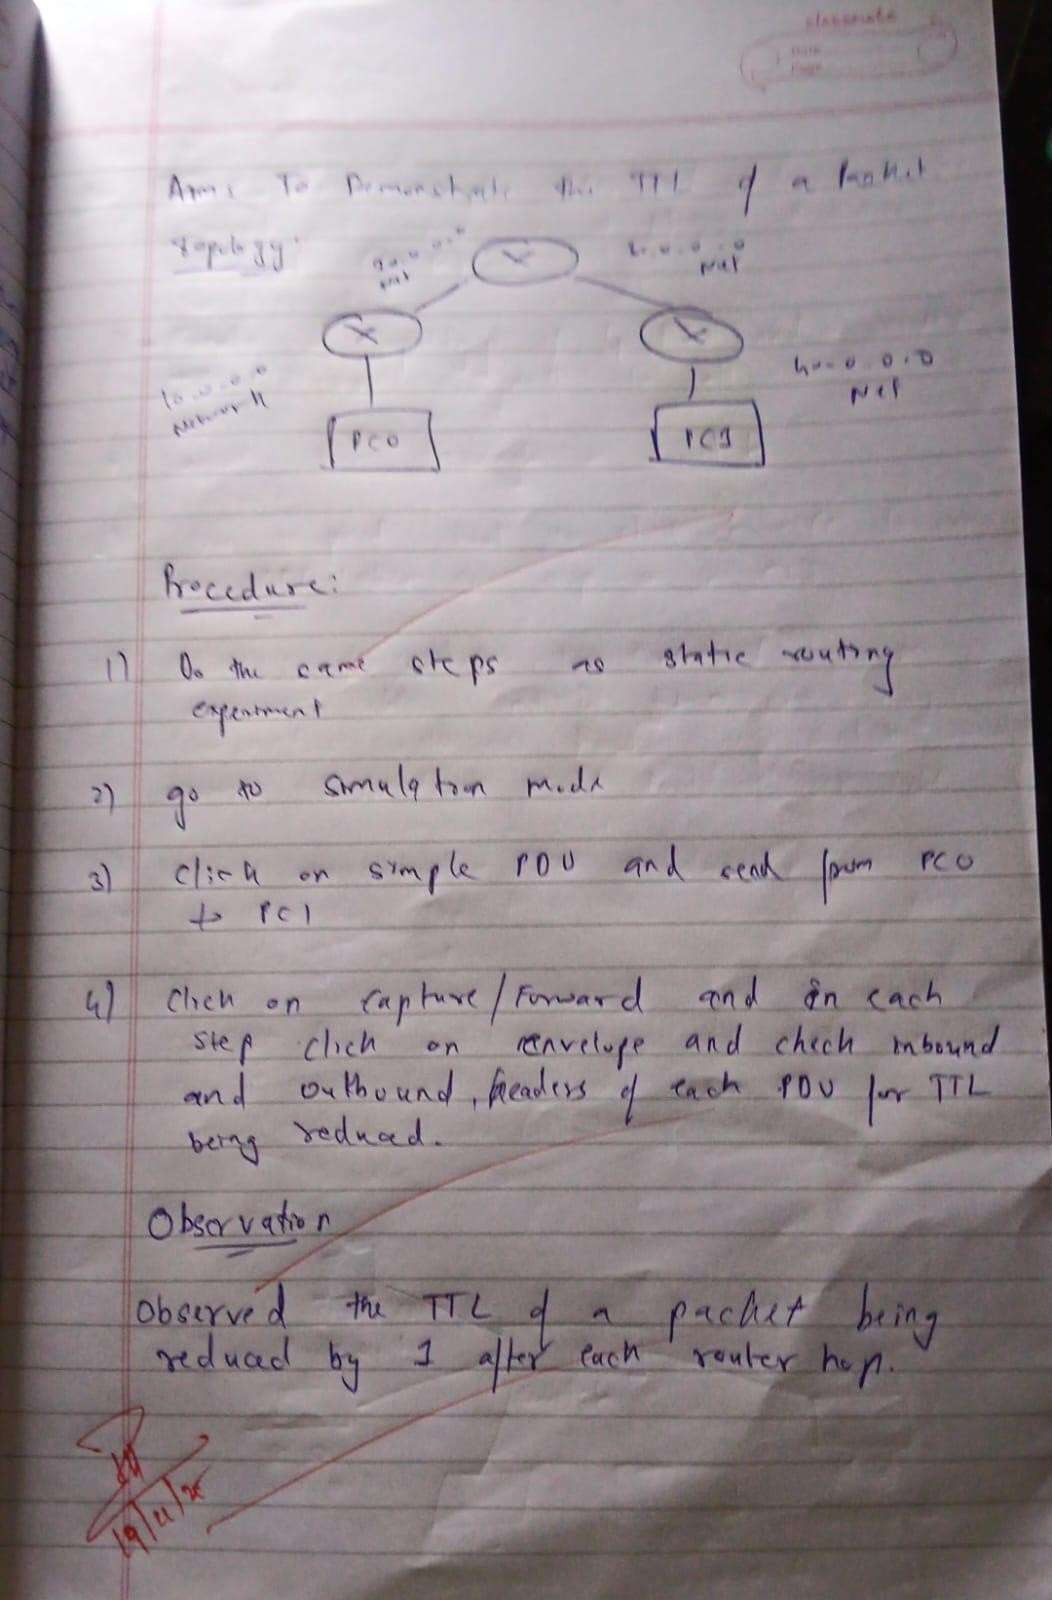 elaborate
Date
Page
Aim: To Demonstrate the TTL of a Packet
Topology:
Net
Net
10.0.0.0
Network
0.0.0
Net
PC0
PC1
Procedure:
1) Do the same steps as static routing
experiment
2) go to simulation mode
3) Click on simple PDU and send from PC0
to PC1
4) Click on Capture/Forward and in each
step click on envelope and check inbound
and outbound, headers of each PDU for TTL
being reduced.
Observation
Observed the TTL of a packet being
reduced by 1 after each router hop.